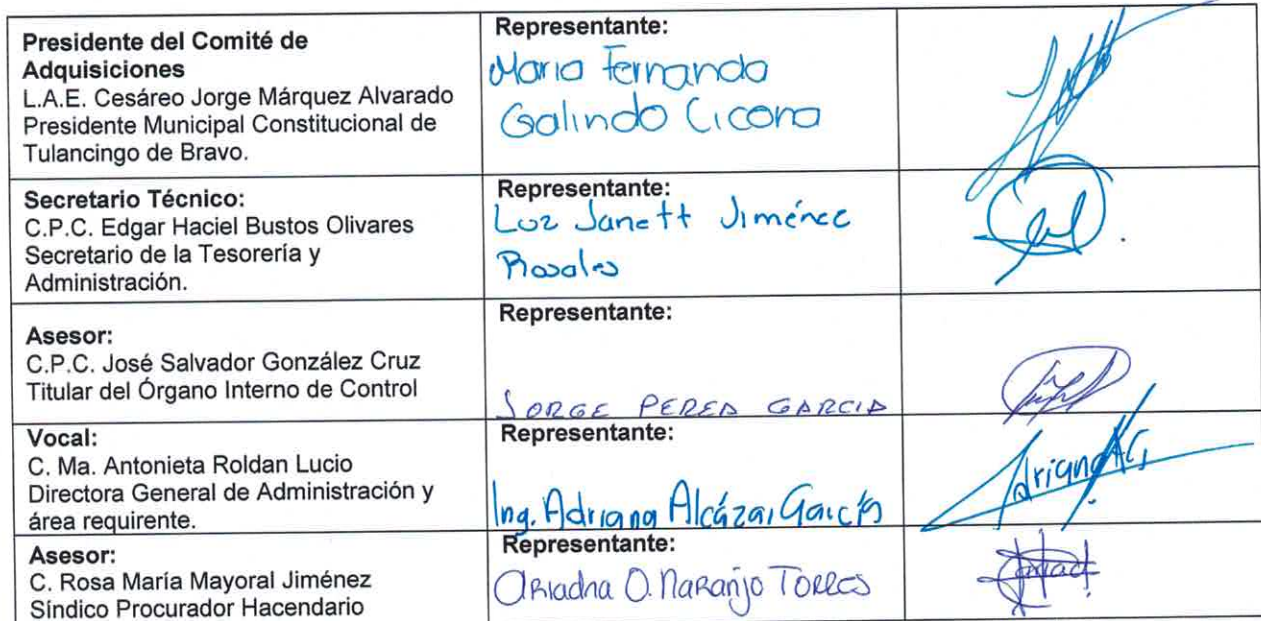 Presidente del Comité de
Adquisiciones
L.A.E. Cesáreo Jorge Márquez Alvarado
Presidente Municipal Constitucional de
Tulancingo de Bravo.
Representante:
Maria Fernanda
Galindo Cicona
Secretario Técnico:
C.P.C. Edgar Haciel Bustos Olivares
Secretario de la Tesorería y
Administración.
Representante:
Luz Janett Jiménez
Rosales
Asesor:
C.P.C. José Salvador González Cruz
Titular del Órgano Interno de Control
Representante:
JORGE PEREA GARCIA
Vocal:
C. Ma. Antonieta Roldan Lucio
Directora General de Administración y
área requirente.
Representante:
Ing. Adriana Alcázar García
AdrianaAG
Asesor:
C. Rosa María Mayoral Jiménez
Síndico Procurador Hacendario
Representante:
Ariadna O. Naranjo Torres